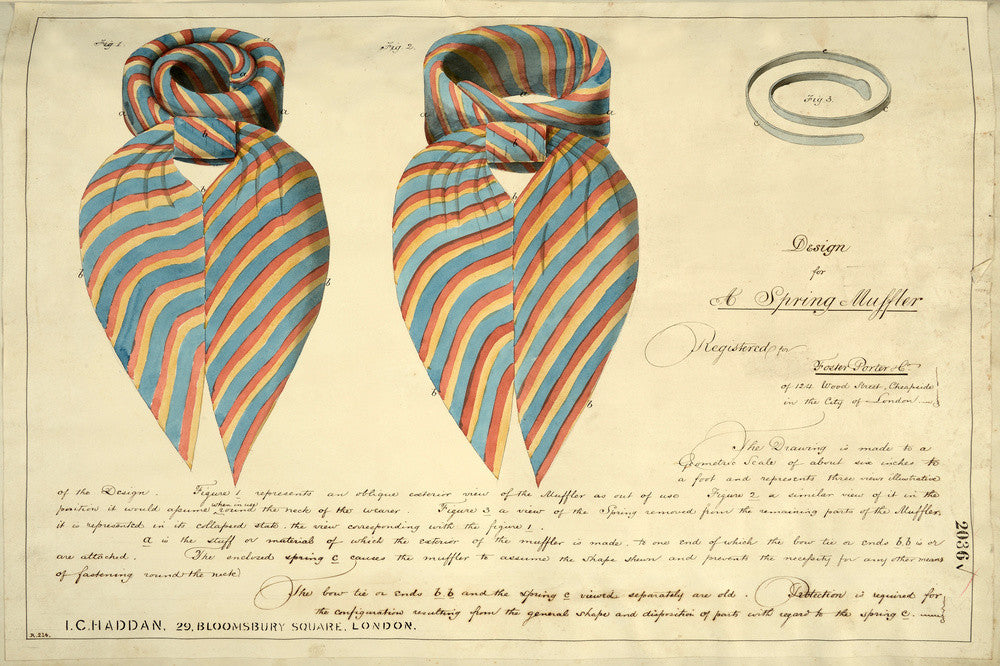 Fig 1.
a
a
a
b
b
b
b
Fig. 2.
a
a
a
b
b
b
b
Fig 3.
c
c
c
Design
for
A Spring Muffler
Registered for
Foster Porter & Co
of 124 Wood Street, Cheapside
in the City of London
The Drawing is made to a
Geometric Scale of about six inches to
a foot and represents three views illustrative
of the Design. Figure 1 represents an oblique exterior view of the Muffler as out of use Figure 2 a similar view of it in the
position it would assume when in use round the neck of the wearer. Figure 3 a view of the Spring removed from the remaining parts of the Muffler.
it is represented in its collapsed state. the view corresponding with the figure 1.
a is the stuff or material of which the exterior of the muffler is made. to one end of which the bow tie or ends b.b is or
are attached. The enclosed spring c causes the muffler to assume the shape shewn and prevents the necessity for any other means
of fastening round the neck
The bow tie or ends b.b and the spring c viewed separately are old. Protection is required for
the configuration resulting from the general shape and disposition of parts with regard to the spring c.
I.C. HADDAN, 29, BLOOMSBURY SQUARE, LONDON.
2036